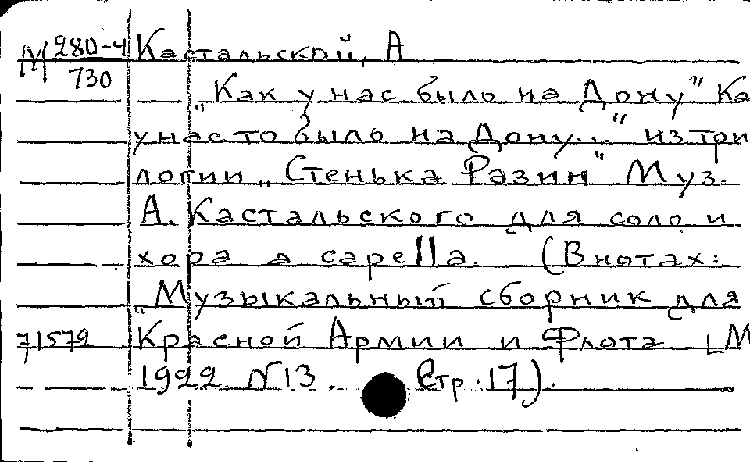 М 280-4 Кастальской, А
730
„Как у нас было на Дону" Ка
у нас то было на Дону..." из три
логии „Стенька Разин" Муз.
А. Кастальского для соло и
хора a capella. (В нотах:
„Музыкальный сборник для
71572 Красной Армии и Флота [М
1922 N13. Стр. 17).